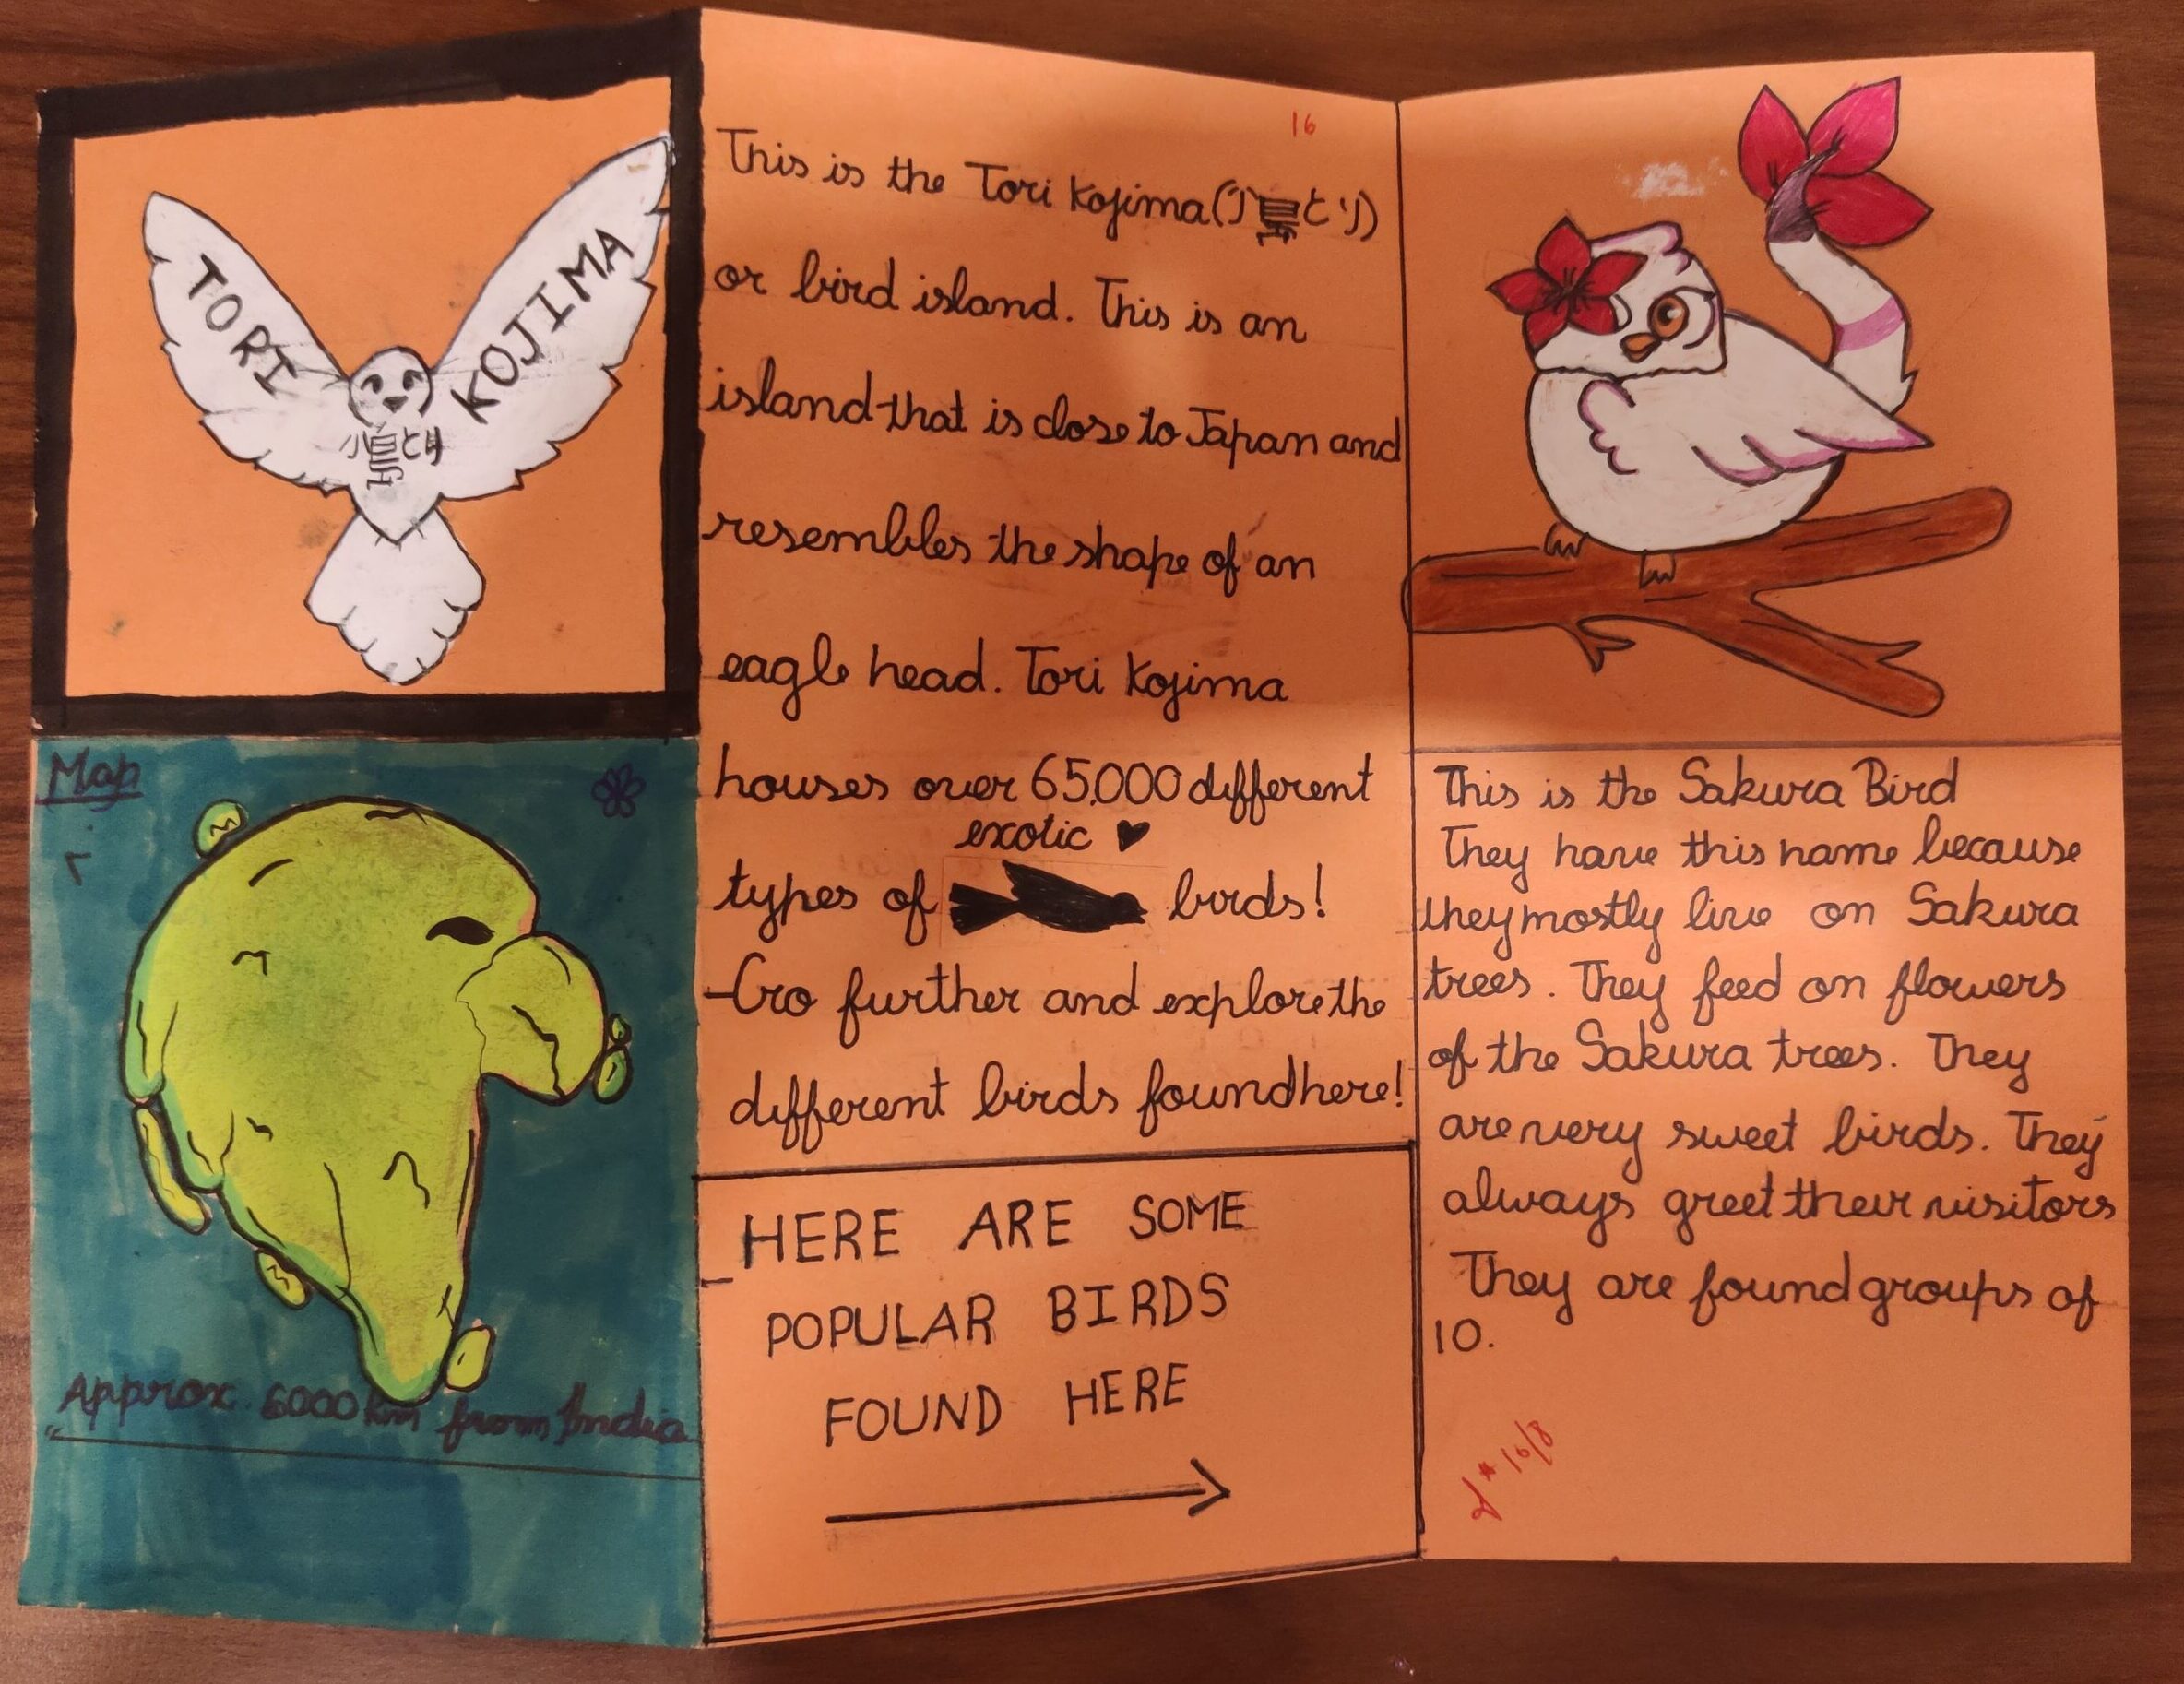 TORI KOJIMA
小島とり
Map
Approx. 6000 km from India
16
This is the Tori Kojima (小島とり)
or bird island. This is an
island that is close to Japan and
resembles the shape of an
eagle head. Tori Kojima
houses over 65,000 different
exotic
types of birds!
Go further and explore the
different birds found here!
HERE ARE SOME
POPULAR BIRDS
FOUND HERE
This is the Sakura Bird
They have this name because
they mostly live on Sakura
trees. They feed on flowers
of the Sakura trees. They
are very sweet birds. They
always greet their visitors
They are found groups of
10.